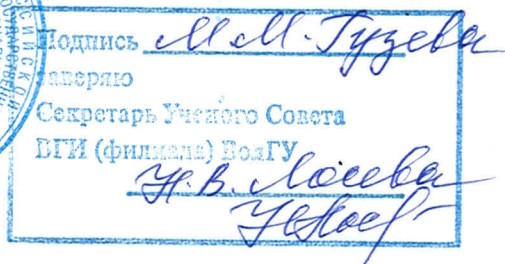 Подпись М.М. Гузева
заверяю
Секретарь Ученого Совета
ВГИ (филиала) ВолГУ
Н.В. Лосева